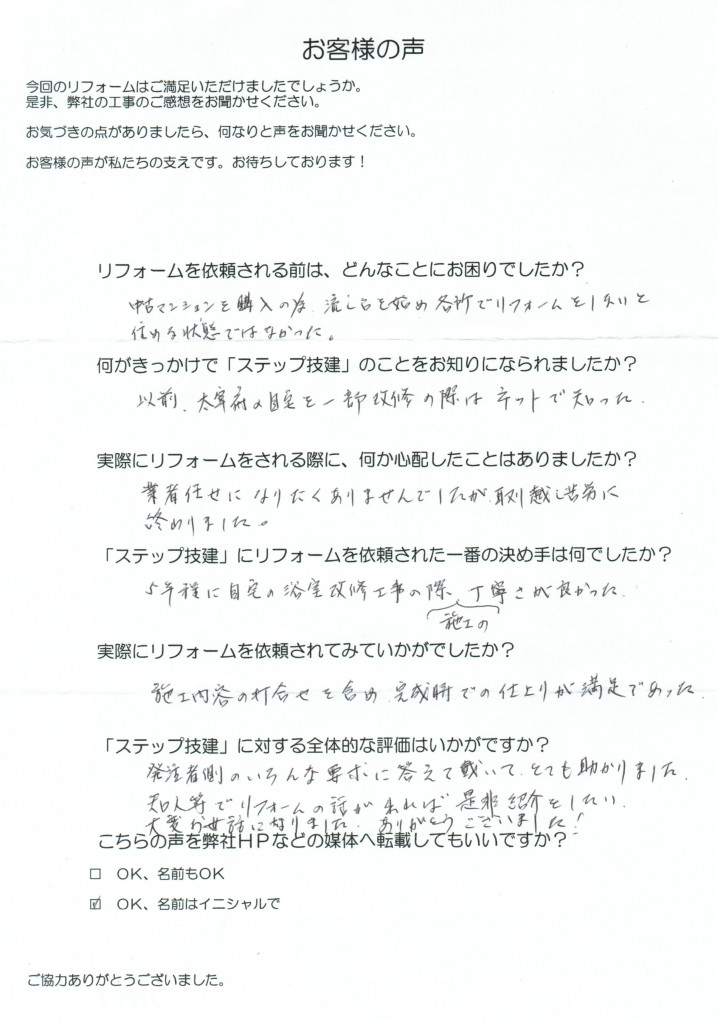 お客様の声
今回のリフォームはご満足いただけましたでしょうか。
是非、弊社の工事のご感想をお聞かせください。
お気づきの点がありましたら、何なりと声をお聞かせください。
お客様の声が私たちの支えです。お待ちしております！
リフォームを依頼される前は、どんなことにお困りでしたか？
中古マンションを購入の為、流し台を始め各所でリフォームをしないと
住める状態ではなかった。
何がきっかけで「ステップ技建」のことをお知りになられましたか？
以前、太宰府の自宅を一部改修の際はネットで知った。
実際にリフォームをされる際に、何か心配したことはありましたか？
業者任せになりたくありませんでしたが、取り越し苦労に
終わりました。
「ステップ技建」にリフォームを依頼された一番の決め手は何でしたか？
5年程に自宅の浴室改修工事の際、丁寧さが良かった。
施工の
実際にリフォームを依頼されてみていかがでしたか？
施工内容の打合せを含め、完成時での仕上りが満足であった。
「ステップ技建」に対する全体的な評価はいかがですか？
発注者側のいろんな要求に答えて戴いて、とても助かりました。
知人等でリフォームの話があれば是非紹介をしたい。
大変お世話になりました。ありがとうございました！
こちらの声を弊社ＨＰなどの媒体へ転載してもいいですか？
□ OK、名前もOK
☑ OK、名前はイニシャルで
ご協力ありがとうございました。